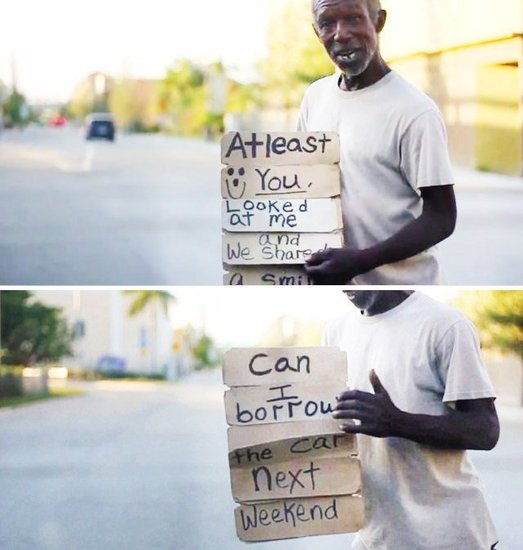 Atleast
You.
Looked
at me
and
We Shared
a smi
Can
I
borrow
the car
Next
Weekend